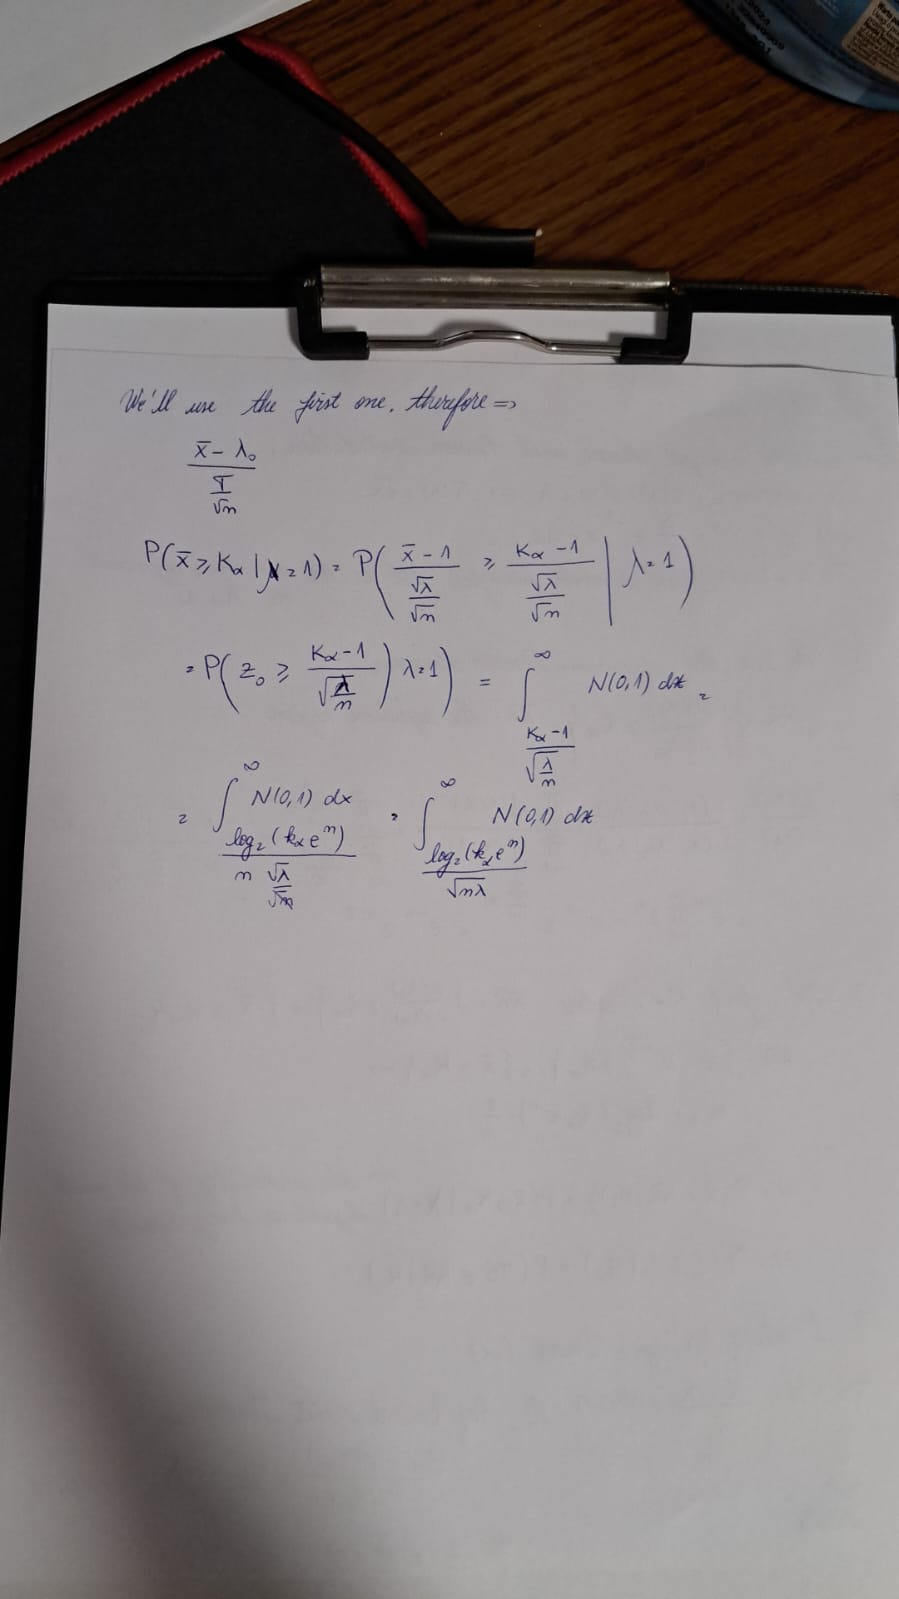 We'll use the first one, therefore =>
x̄ - λ₀ / (I / √n)
P(x̄ ≥ Kα | λ = 1) = P( (x̄ - 1) / (√λ / √n) ≥ (Kα - 1) / (√λ / √n) | λ = 1 )
= P( z₀ ≥ (Kα - 1) / √(λ/n) ) λ = 1 ) = ∫_{(Kα - 1) / √(λ/n)}^{∞} N(0,1) dx =
= ∫_{log₂(kα eⁿ) / (n √λ / √n)}^{∞} N(0,1) dx = ∫_{log₂(kα eⁿ) / √(nλ)}^{∞} N(0,1) dx